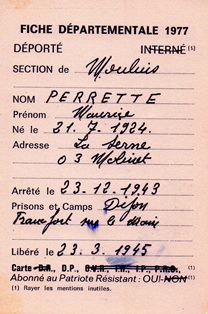 FICHE DÉPARTEMENTALE 1977
DÉPORTÉ INTERNÉ (1)
SECTION de Moulins
NOM PERRETTE
Prénom Maurice
Né le 21. 7. 1924.
Adresse La Serne
03 Molinet
Arrêté le 23.12.1943
Prisons et Camps Dijon
Francfort sur le Main
Libéré le 23. 3. 1945
Carte D.R., D.P., (1)
Abonné au Patriote Résistant : OUI-NON (1)
(1) Rayer les mentions inutiles.